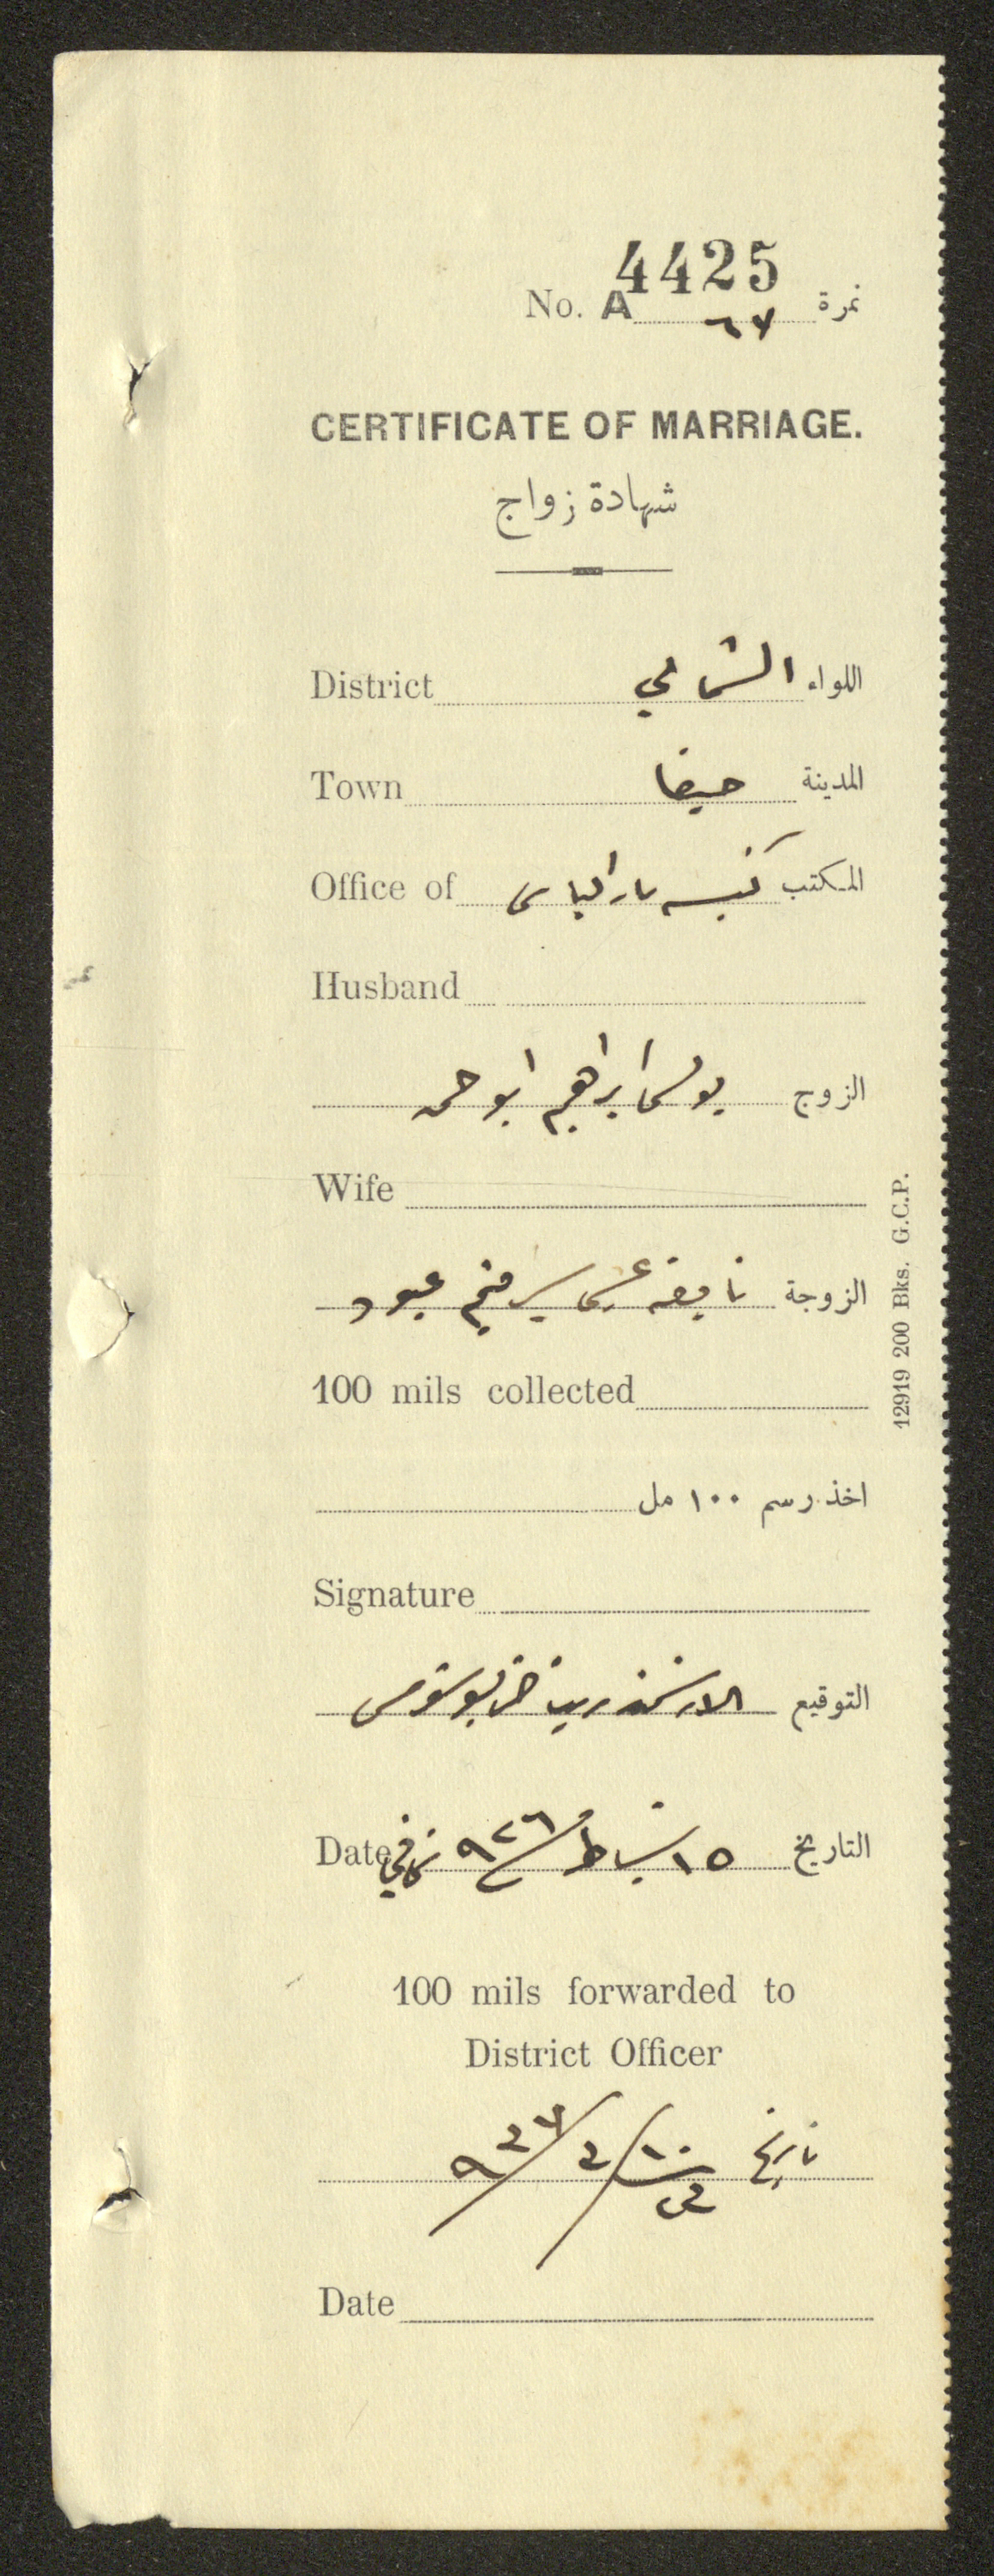 4425
No. A ٦٧ نمرة
CERTIFICATE OF MARRIAGE.
شهادة زواج
District الشمالي اللواء
Town حيفا المدينة
Office of كنيسة مار الياس المكتب
Husband
الزوج ابراهيم ابو
Wife
الزوجة عيسى عبود
100 mils collected
اخذ رسم ١٠٠ مل
Signature
التوقيع الارشمندريت
Date ١٥ شباط ٩٢٦ التاريخ
12919 200 Bks. G.C.P.
100 mils forwarded to
District Officer
تاريخ في
Date